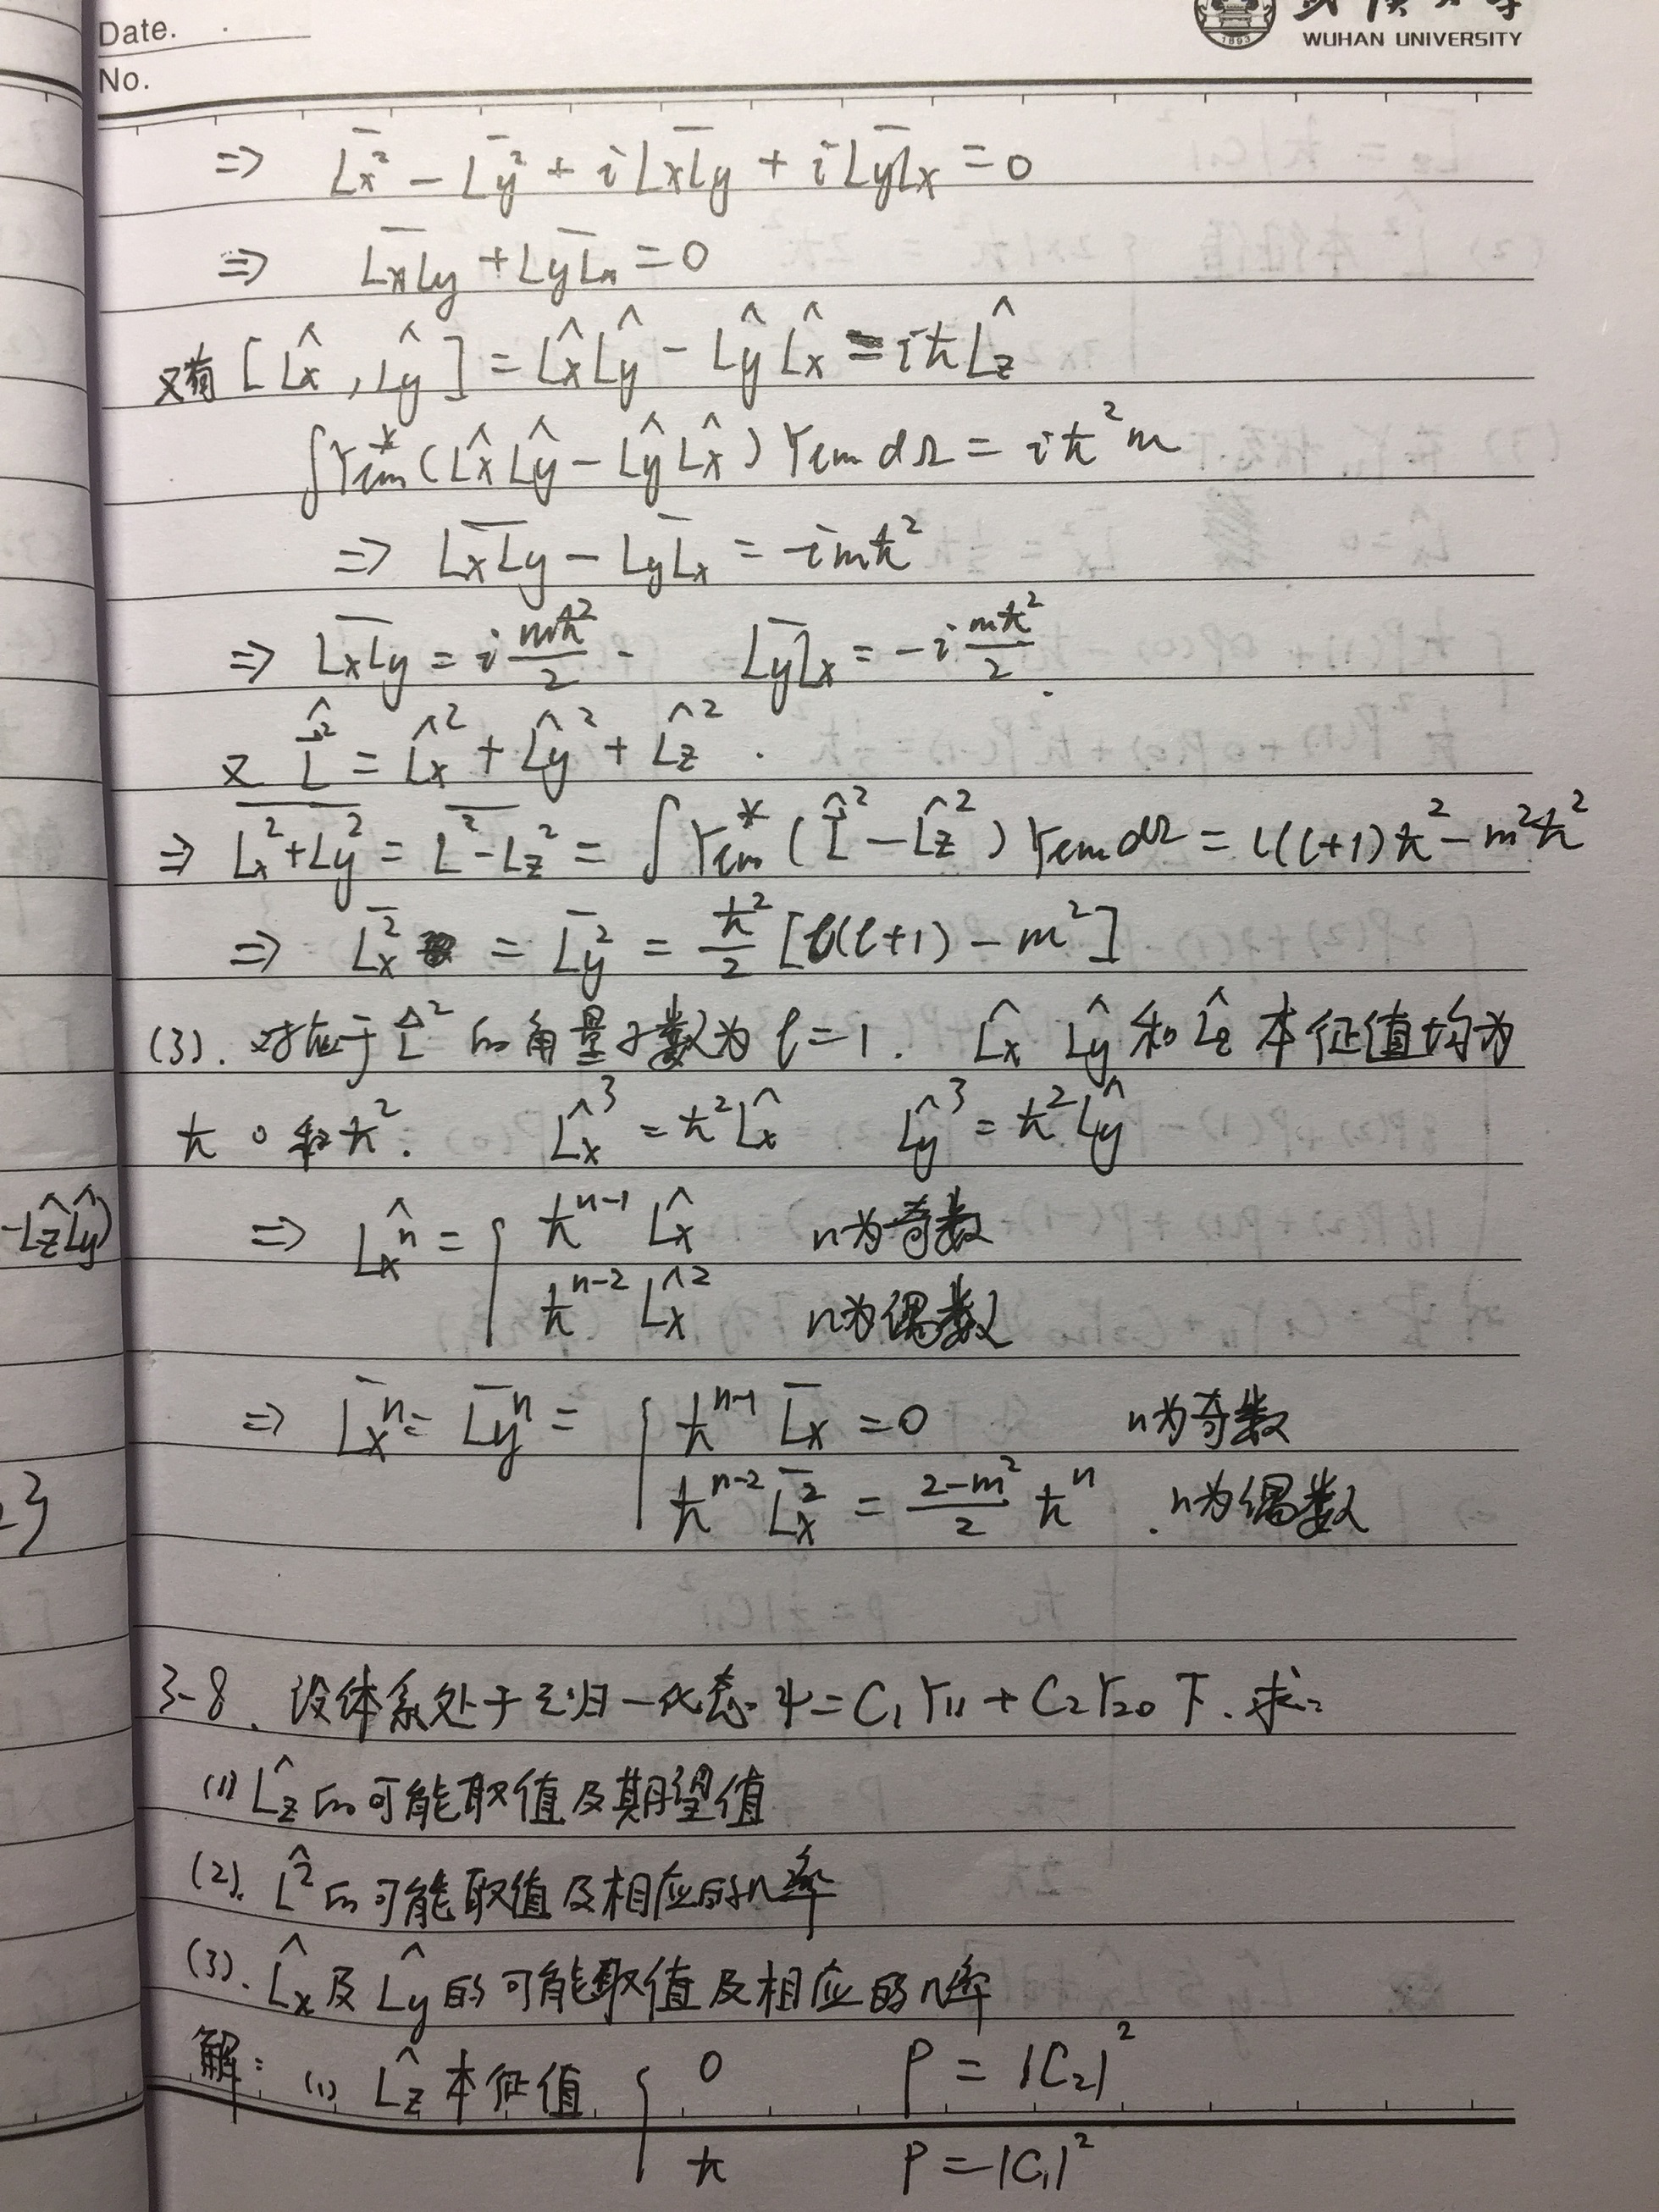 Date.
WUHAN UNIVERSITY
No.
⇒ \overline{L_x^2} - \overline{L_y^2} + i\overline{L_xL_y} + i\overline{L_yL_x} = 0
⇒ \overline{L_xL_y} + \overline{L_yL_x} = 0
又有 [\hat{L_x}, \hat{L_y}] = \hat{L_x}\hat{L_y} - \hat{L_y}\hat{L_x} = iħ\hat{L_z}
∫Y_{lm}^*(\hat{L_x}\hat{L_y} - \hat{L_y}\hat{L_x})Y_{lm}dΩ = iħ^2m
⇒ \overline{L_xL_y} - \overline{L_yL_x} = imħ^2
⇒ \overline{L_xL_y} = i\frac{mħ^2}{2}. \overline{L_yL_x} = -i\frac{mħ^2}{2}.
又 \hat{L}^2 = \hat{L_x}^2 + \hat{L_y}^2 + \hat{L_z}^2.
⇒ \overline{L_x^2+L_y^2} = \overline{L^2-L_z^2} = ∫Y_{lm}^*(\hat{L}^2 - \hat{L_z}^2)Y_{lm}dΩ = l(l+1)ħ^2 - m^2ħ^2
⇒ \overline{L_x^2} = \overline{L_y^2} = \frac{ħ^2}{2}[l(l+1) - m^2]
(3). 对应于\hat{L}^2的角量子数为l=1. \hat{L_x} \hat{L_y}和\hat{L_z}本征值均为
ħ 0 和ħ^2. \hat{L_x}^3 = ħ^2\hat{L_x} \hat{L_y}^3 = ħ^2\hat{L_y}
-\hat{L_z}\hat{L_y})
⇒ \hat{L_x}^n = { ħ^{n-1}\hat{L_x} n为奇数
ħ^{n-2}\hat{L_x}^2 n为偶数
⇒ \overline{L_x^n} = \overline{L_y^n} = { ħ^{n-1}\overline{L_x} = 0 n为奇数
ħ^{n-2}\overline{L_x^2} = \frac{2-m^2}{2}ħ^n. n为偶数
3-8. 设体系处于已归一化态ψ=C_1Y_{11}+C_2Y_{20}下.求:
(1) \hat{L_z}的可能取值及期望值
(2). \hat{L}^2的可能取值及相应的几率
(3). \hat{L_x}及\hat{L_y}的可能取值及相应的几率
解: (1) \hat{L_z}本征值 { 0 P = |C_2|^2
ħ P = |C_1|^2